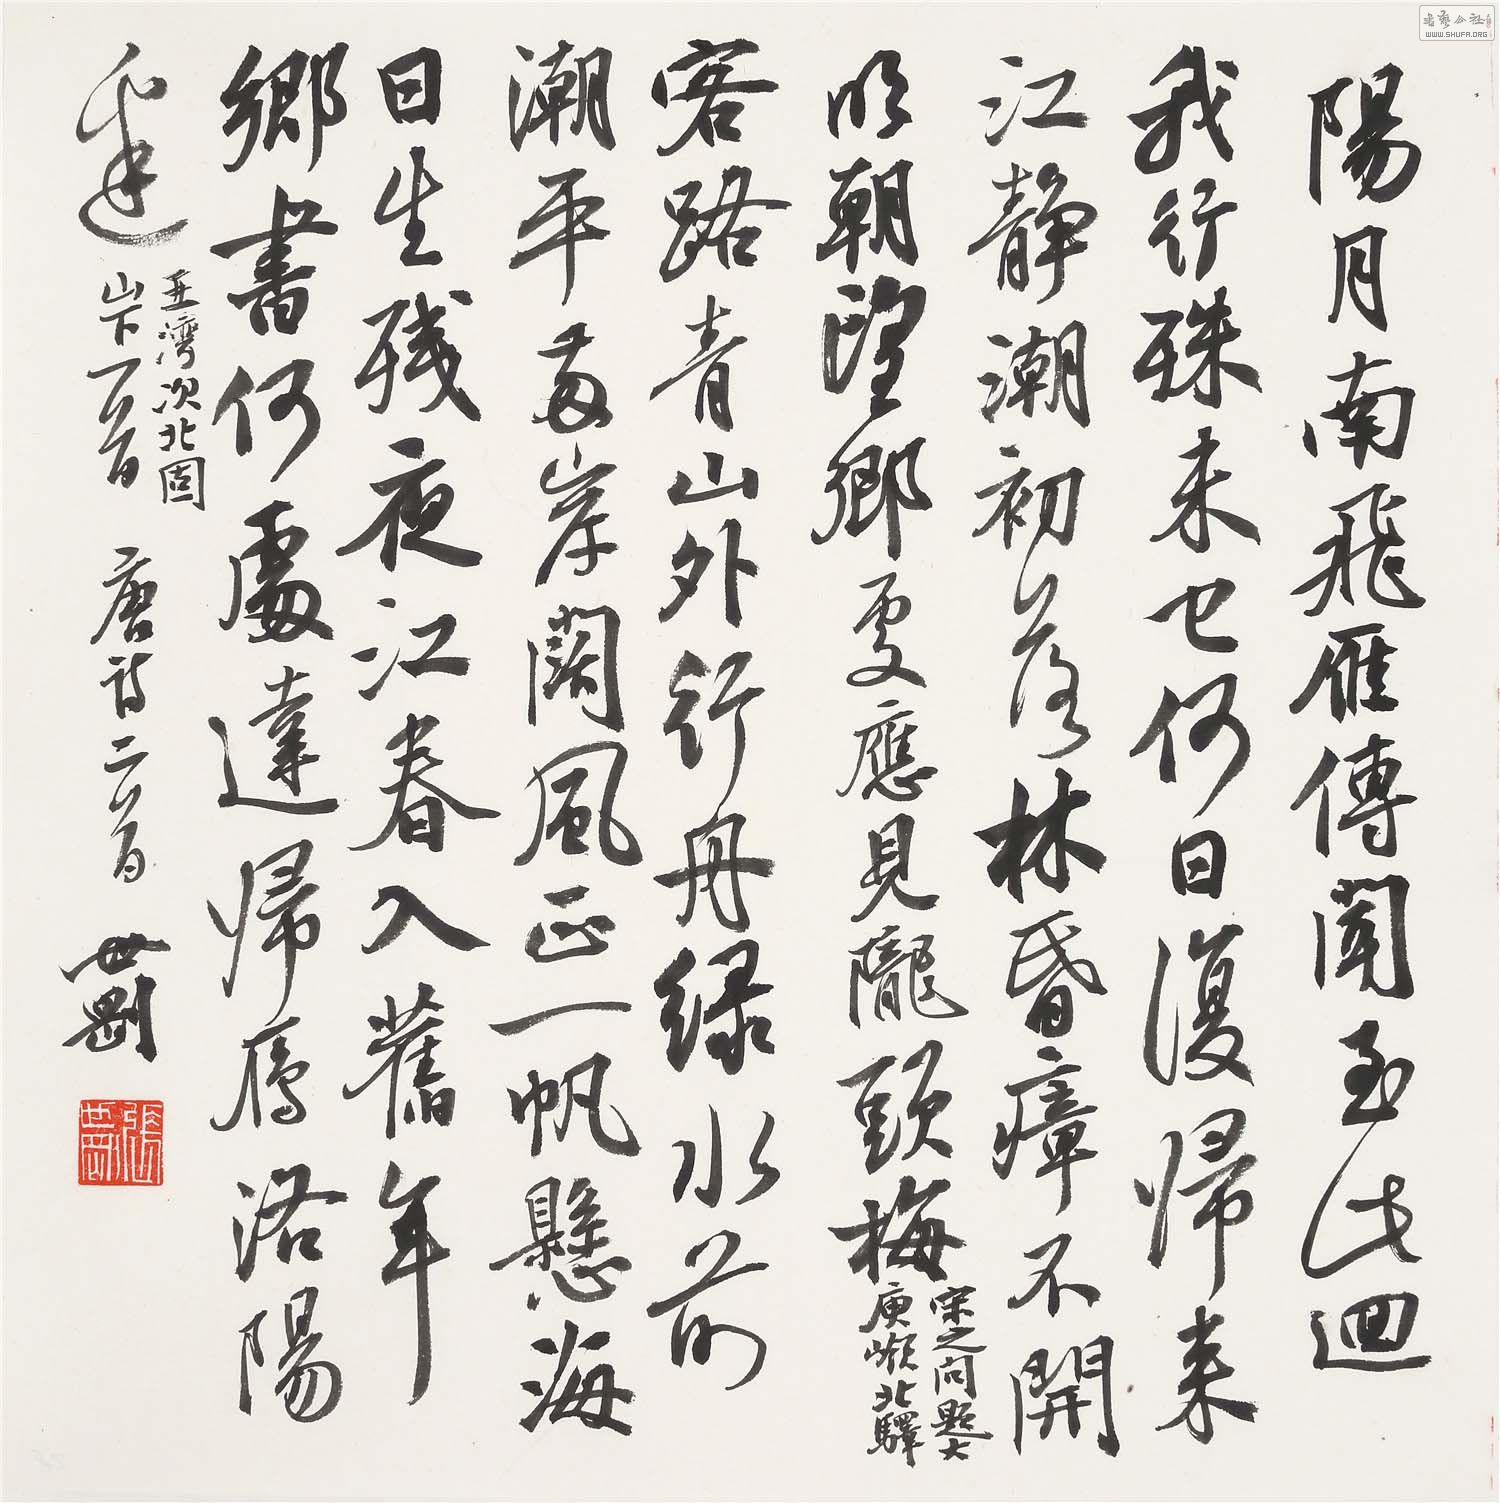 陽月南飛雁傳聞至此迴
我行殊未已何日復歸来
江静潮初落林昏瘴不開
明朝望鄉處應見隴頭梅
宋之问题大
庾嶺北驛
客路青山外行舟绿水前
潮平两岸闊風正一帆懸海
日生残夜江春入舊年
鄉書何處達歸雁洛陽
邊
王灣次北固
山下一首
唐诗二首
世剛
書藝公社
WWW.SHUFA.ORG